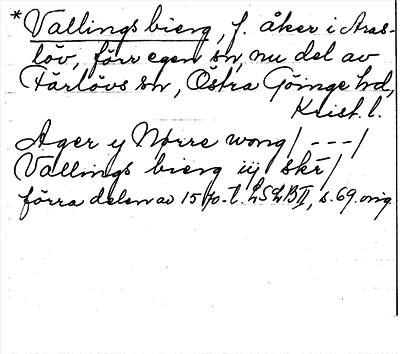 *Vallings bierg, f. åker i Aras-
löv, förr egen sn, nu del av
Färlövs sn, Östra Göinge hd,
Krist. l.
Ager y Nørre wong/ ---/
Vallings bierg iij skr̄/
förra delen av 1570-t. LSLB II, s. 69. orig